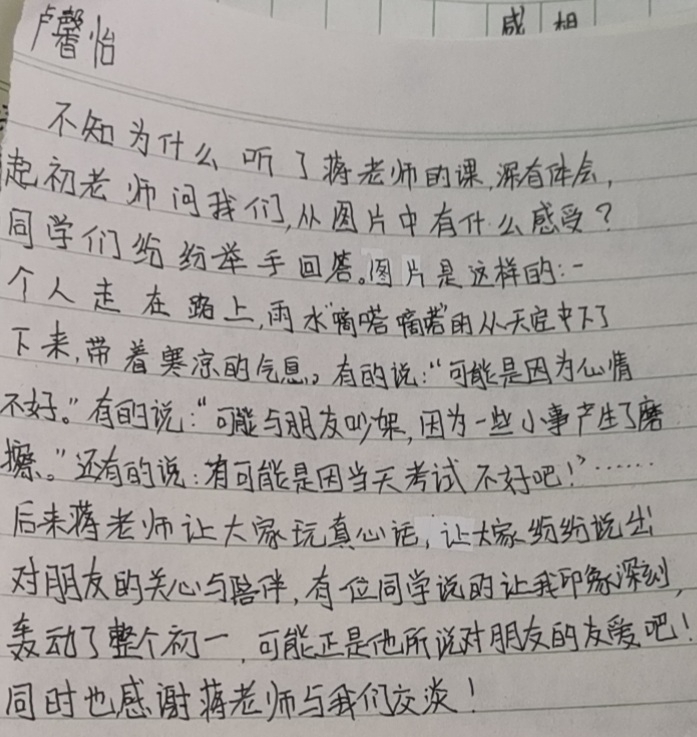 感 想
卢馨怡
不知为什么听了蒋老师的课,深有体会,
起初老师问我们,从图片中有什么感受?
同学们纷纷举手回答。图片是这样的:一
个人走在路上,雨水“嘀嗒嘀嗒”的从天空中下了
下来,带着寒凉的气息。有的说:“可能是因为心情
不好。”有的说:“可能与朋友吵架,因为一些小事产生了磨
擦。”还有的说:有可能是因当天考试不好吧!”……
后来蒋老师让大家玩真心话,让大家纷纷说出
对朋友的关心与陪伴,有一位同学说的让我印象深刻,
轰动了整个初一,可能正是他所说对朋友的友爱吧!
同时也感谢蒋老师与我们交谈!